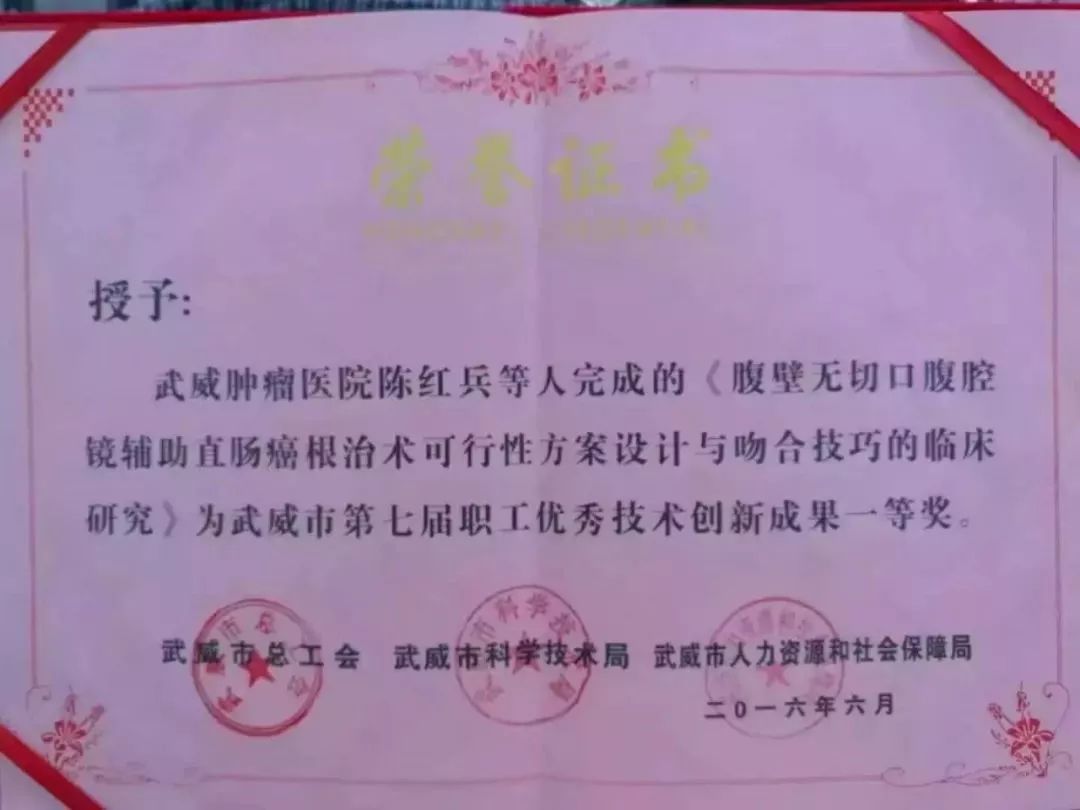 荣誉证书
授予：
武威肿瘤医院陈红兵等人完成的《腹壁无切口腹腔
镜辅助直肠癌根治术可行性方案设计与吻合技巧的临床
研究》为武威市第七届职工优秀技术创新成果一等奖。
武威市总工会 武威市科学技术局 武威市人力资源和社会保障局
二〇一六年六月